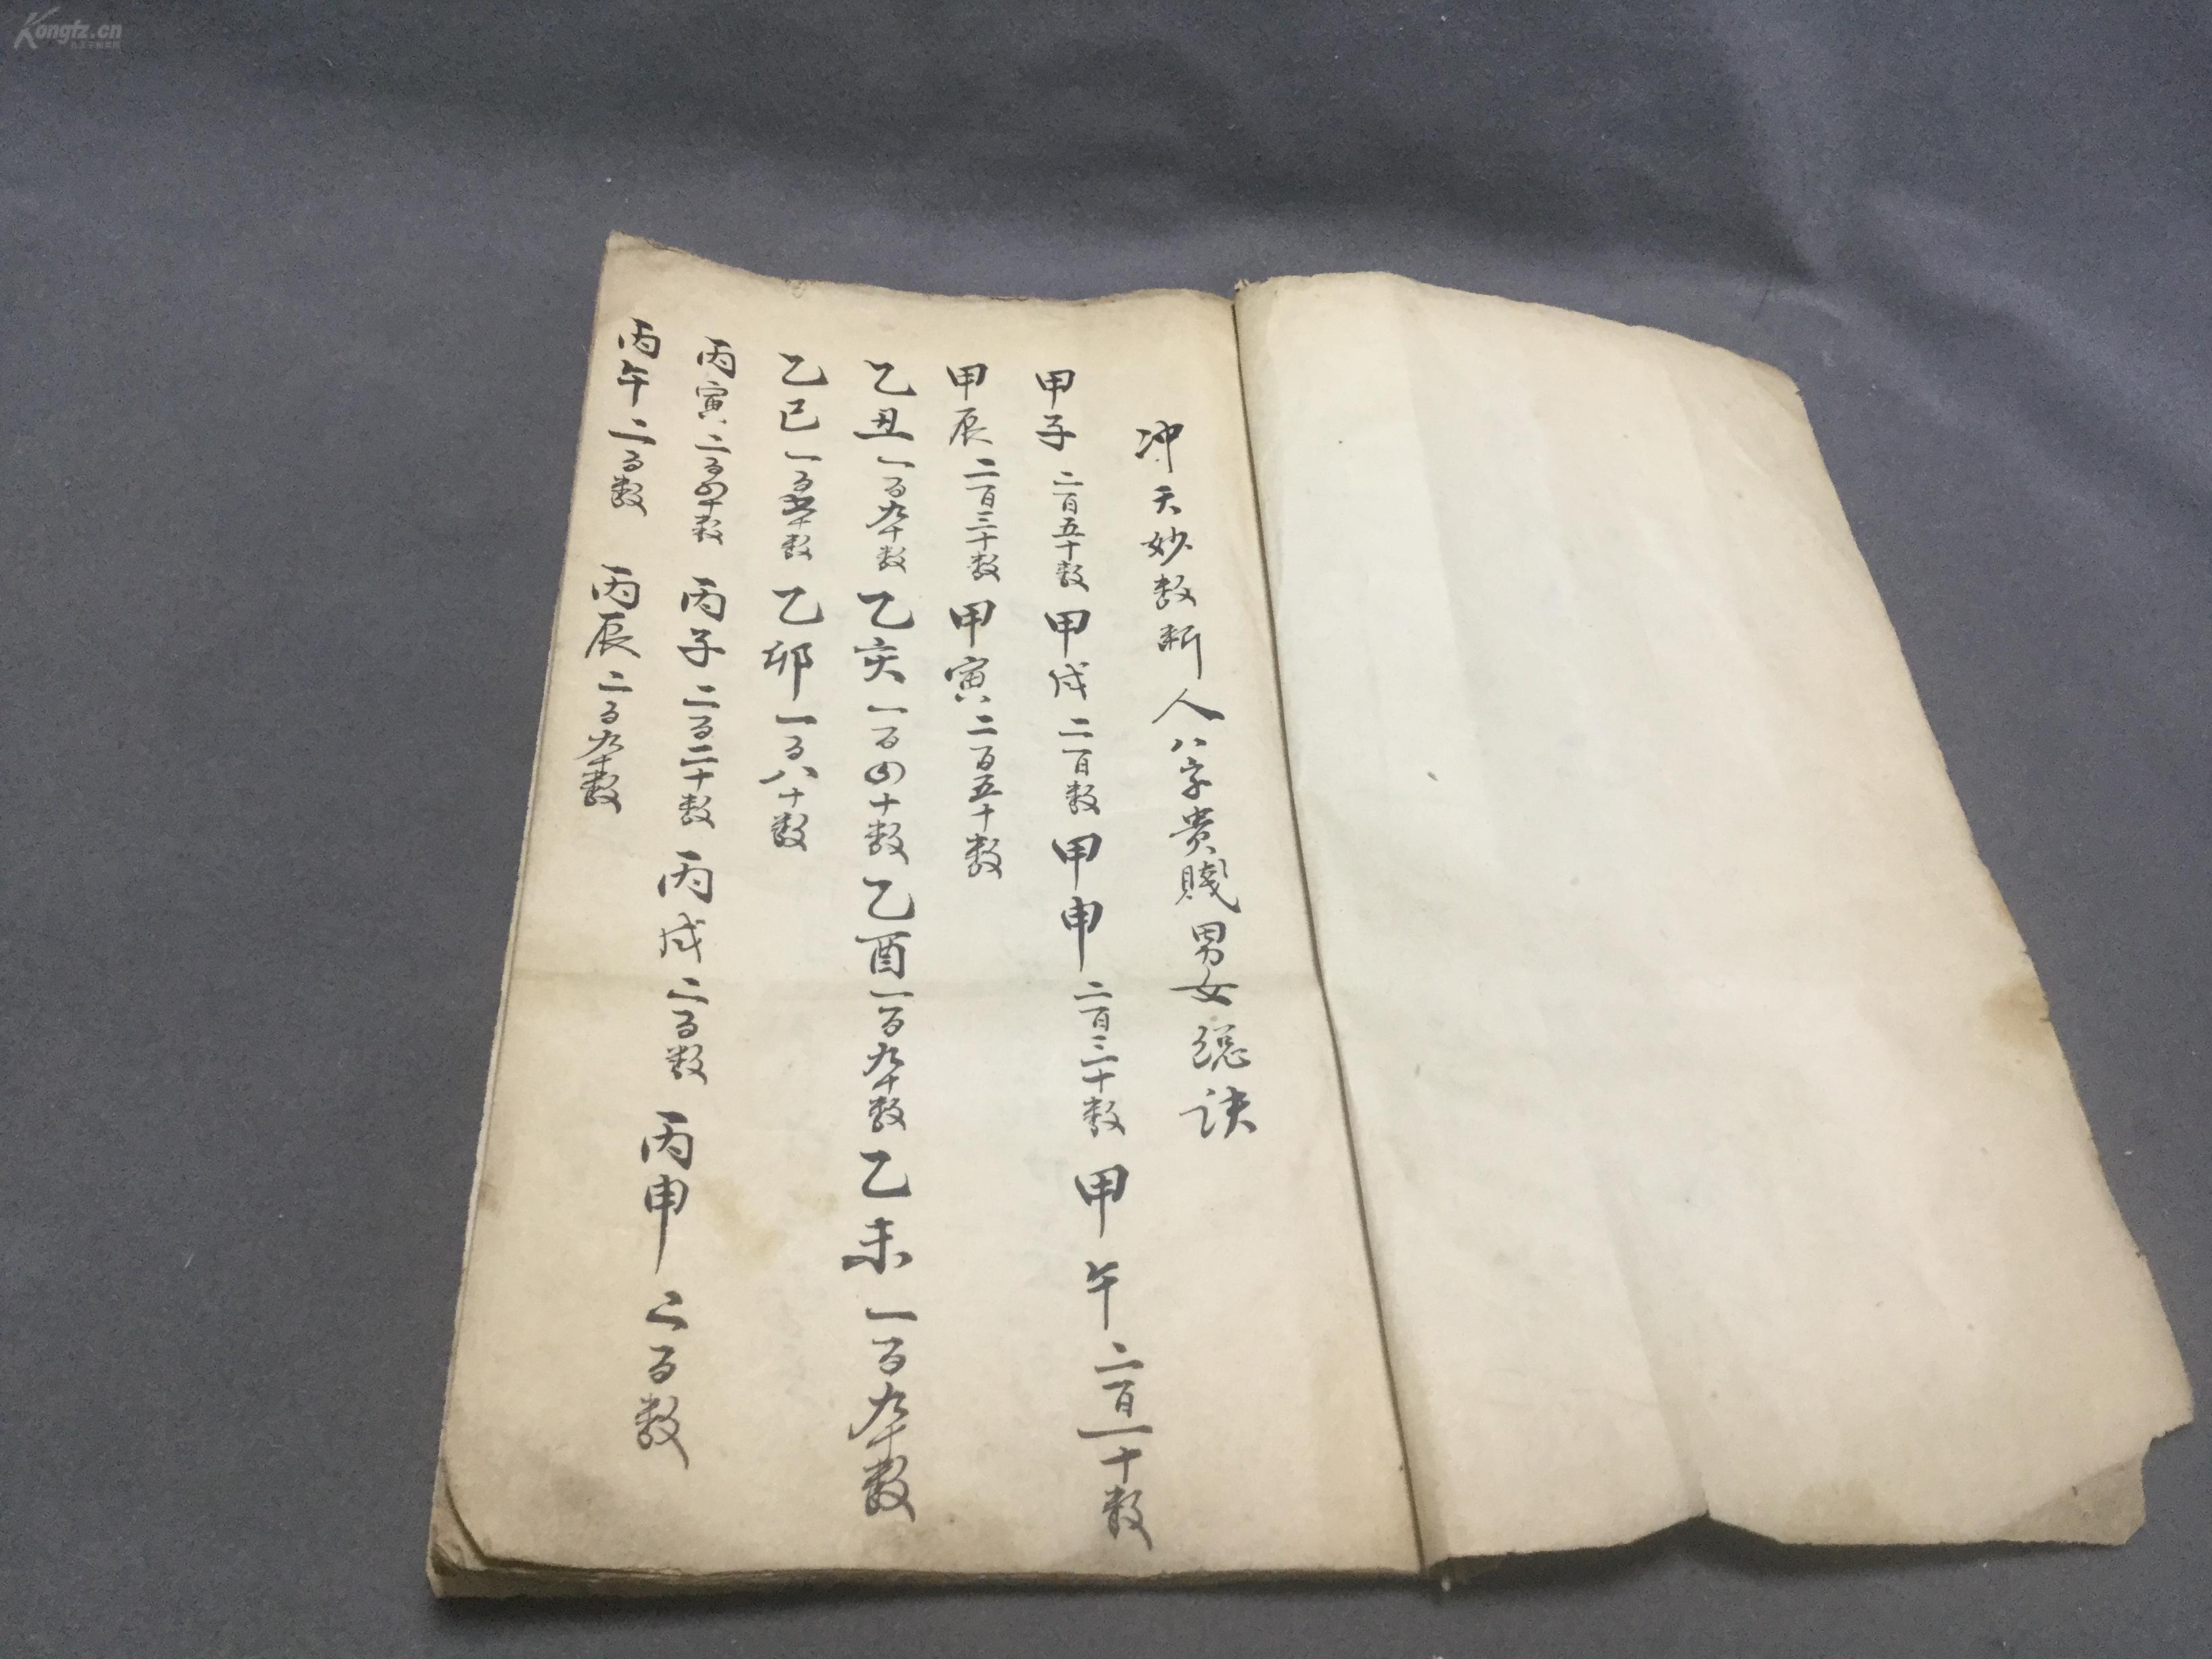 冲天妙数断人八字贵賤男女總訣
甲子二百五十数 甲戌二百数 甲申二百三十数 甲午二百一十数
甲辰二百三十数 甲寅二百五十数
乙丑一百九十数 乙亥一百四十数 乙酉一百九十数 乙未一百九十数
乙巳一百五十数 乙卯一百八十数
丙寅二百四十数 丙子二百二十数 丙戌二百数 丙申二百数
丙午二百数 丙辰二百九十数
Kongfz.cn